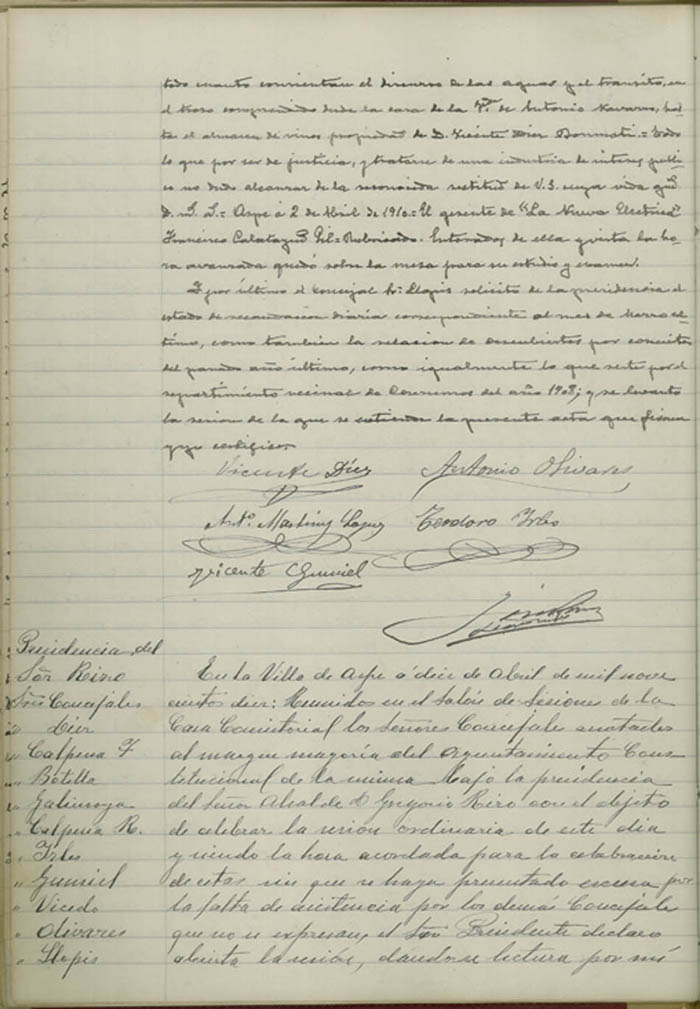 todo cuanto conviertan el discurso de las aguas y el transito, en
el trozo comprendido desde la casa de la V.da de Antonio Navarro, has-
ta el almacen de vinos propiedad de D. Vicente Diez Bonmati.= Todo
lo que por ser de justicia, y tratarse de una industria de interes publi-
co no dudo alcanzar de la reconocida rectitud de V.S. cuya vida gue.
D. m. a.= Aspe á 2 de Abril de 1910.= El gerente de "La Nueva Electrica"
Francisco Calatayud Gil= Rubricado. Enterados de ella y vista la ho-
ra avanzada quedó sobre la mesa para su estudio y examen.
Y por último el concejal Sr. Llopis solicitó de la presidencia el
estado de recaudacion diaria correspondiente al mes de Marzo úl-
timo, como tambien la relacion de descubiertos por conciertos
del pasado año último, como igualmente lo que reste por el
repartimiento vecinal de Consumos del año 1908; y se levantó
la sesion de la que se extiende la presente acta que firman
y yo certifico.
Vicente Díez Antonio Olivares
Anto. Martinez Lopez Teodoro Irles
Vicente Gumiel
Presidencia del
Sôr Rizo
Sres Concejales
Diez
" Calpena F
" Botella
" Galinsoga
" Calpena R.
" Irles
" Gumiel
" Vicedo
" Olivares
" Llopis
En la Villa de Aspe á diez de Abril de mil nove-
cientos diez: Reunidos en el Salón de Sesiones de la
Casa Consistorial los Señores Concejales anotados
al margen mayoría del Ayuntamiento Cons-
titucional de la misma bajo la presidencia
del Señor Alcalde D Gregorio Rizo con el objeto
de celebrar la sesion ordinaria de este dia
y siendo la hora acordada para la celebración
de estas sin que se haya presentado escusa por
la falta de asistencia por los demás Concejales
que no se expresan, el Sôr Presidente declaró
abierta la sesión, dandose lectura por mí